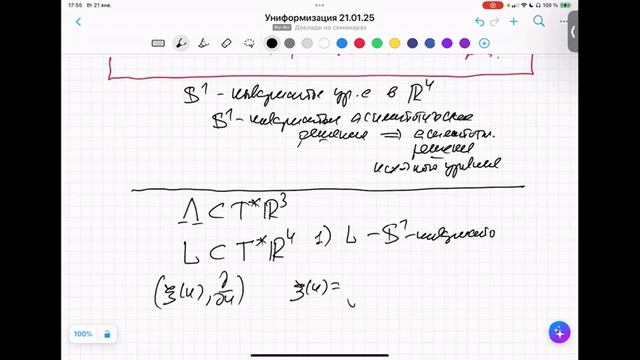 17:55 Вт 21 янв.
Униформизация 21.01.25
Доклады на семинарах
S¹-инвариантное ур-е в ℝ⁴
S¹-инвариантные асимптотические
решения ⇒ асимптот.
решения
исходного уравнения
Λ ⊂ T*ℝ³
L ⊂ T*ℝ⁴ 1) L - S¹-инвариантно
(ξ(u), ∂/∂u) ξ(u) =
100%